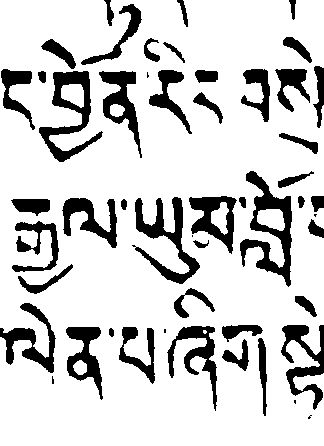 ང་བྱོན་རིང་བསྲེ
རྒྱལ་ཡུམ་བློ་
ལེན་པ་ཞིག་སྟེ